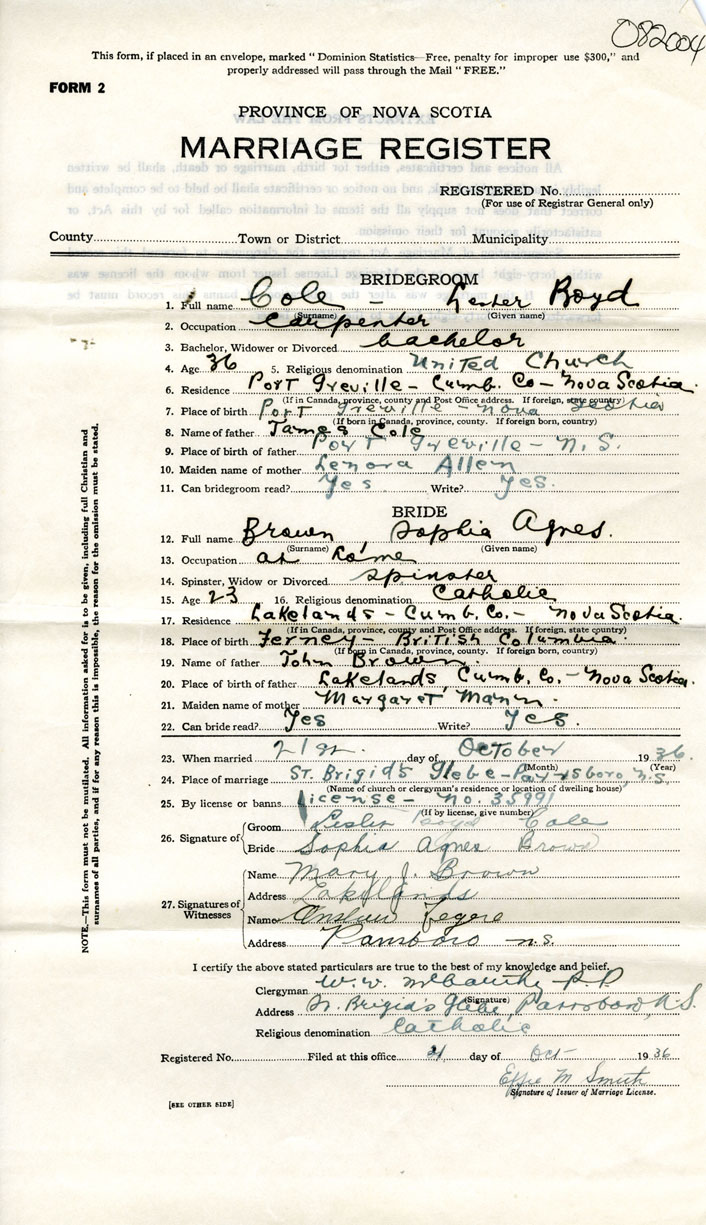 082004
This form, if placed in an envelope, marked "Dominion Statistics—Free, penalty for improper use $300," and
properly addressed will pass through the Mail "FREE."
FORM 2
PROVINCE OF NOVA SCOTIA
MARRIAGE REGISTER
REGISTERED No.
(For use of Registrar General only)
County Town or District Municipality
BRIDEGROOM
1. Full name Cole – Lester Boyd
(Surname) (Given name)
2. Occupation carpenter
3. Bachelor, Widower or Divorced bachelor
4. Age 36 5. Religious denomination United Church
6. Residence Port Greville – Cumb. Co – Nova Scotia.
(If in Canada, province, county and Post Office address. If foreign, state country)
7. Place of birth Port Greville – Nova Scotia
(If born in Canada, province, county. If foreign born, country)
8. Name of father James Cole
9. Place of birth of father Port Greville – N.S.
10. Maiden name of mother Lenora Allen
11. Can bridegroom read? Yes Write? Yes.
BRIDE
12. Full name Brown Sophia Agnes.
(Surname) (Given name)
13. Occupation at home
14. Spinster, Widow or Divorced spinster
15. Age 23 16. Religious denomination Catholic
17. Residence Lakelands – Cumb. Co. – Nova Scotia.
(If in Canada, province, county and Post Office address. If foreign, state country)
18. Place of birth Ferney – British Columbia.
(If born in Canada, province, county. If foreign born, country)
19. Name of father John Brown.
20. Place of birth of father Lakelands Cumb. Co. – Nova Scotia.
21. Maiden name of mother Margaret Mann.
22. Can bride read? Yes Write? Yes.
23. When married 21st. day of October 1936.
(Month) (Year)
24. Place of marriage St. Brigid's Glebe – Parrsboro, N.S.
(Name of church or clergyman's residence or location of dwelling house)
25. By license or banns License – No. 35991
(If by license, give number)
26. Signature of
Groom Lester Boyd Cole
Bride Sophia Agnes Brown
27. Signatures of Witnesses
Name Mary J. Brown
Address Lakelands
Name
Address Parrsboro N.S.
I certify the above stated particulars are true to the best of my knowledge and belief.
Clergyman W. W. P.P
(Signature)
Address St. Brigid's Glebe, Parrsboro, N.S.
Religious denomination Catholic
Registered No. Filed at this office 21 day of Oct 1936
Effie M Smith
Signature of Issuer of Marriage License.
[SEE OTHER SIDE]
NOTE.—This form must not be mutilated. All information asked for is to be given, including full Christian and
surnames of all parties, and if for any reason this is impossible, the reason for the omission must be stated.